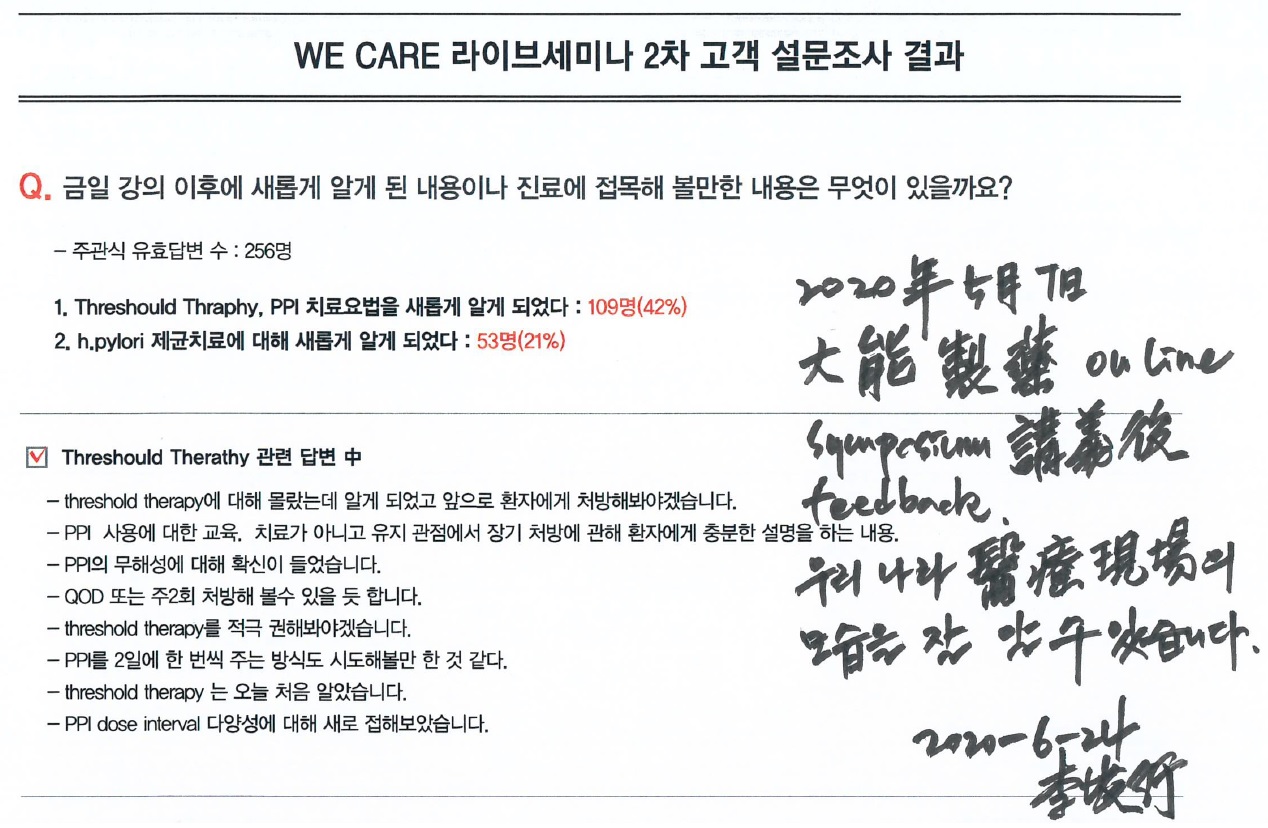 WE CARE 라이브세미나 2차 고객 설문조사 결과
Q. 금일 강의 이후에 새롭게 알게 된 내용이나 진료에 접목해 볼만한 내용은 무엇이 있을까요?
– 주관식 유효답변 수 : 256명
1. Threshould Thraphy, PPI 치료요법을 새롭게 알게 되었다 : 109명(42%)
2. h.pylori 제균치료에 대해 새롭게 알게 되었다 : 53명(21%)
Threshould Therathy 관련 답변 中
– threshold therapy에 대해 몰랐는데 알게 되었고 앞으로 환자에게 처방해봐야겠습니다.
– PPI 사용에 대한 교육. 치료가 아니고 유지 관점에서 장기 처방에 관해 환자에게 충분한 설명을 하는 내용.
– PPI의 무해성에 대해 확신이 들었습니다.
– QOD 또는 주2회 처방해 볼수 있을 듯 합니다.
– threshold therapy를 적극 권해봐야겠습니다.
– PPI를 2일에 한 번씩 주는 방식도 시도해볼만 한 것 같다.
– threshold therapy 는 오늘 처음 알았습니다.
– PPI dose interval 다양성에 대해 새로 접해보았습니다.
2020年 5月 7日
大能 製藥 on line
symposium 講義後
feedback.
우리 나라 醫療現場의
모습을 잘 알 수 있습니다.
2020-6-24
李